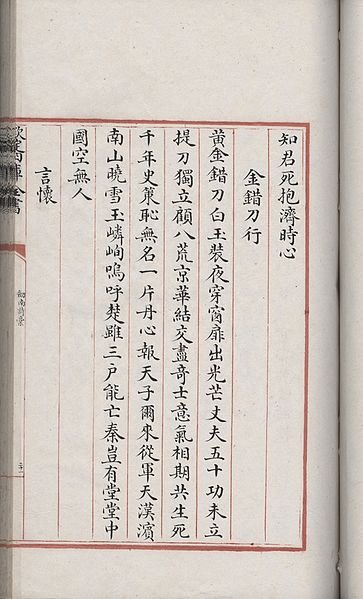 知君死抱濟時心
金錯刀行
黃金錯刀白玉裝夜穿窗扉出光芒丈夫五十功未立
提刀獨立顧八荒京華結交盡奇士意氣相期共生死
千年史策恥無名一片丹心報天子爾來從軍天漢濱
南山曉雪玉嶙峋嗚呼楚雖三户能亡秦豈有堂堂中
國空無人
言懷
欽定四庫全書
劍南詩藁